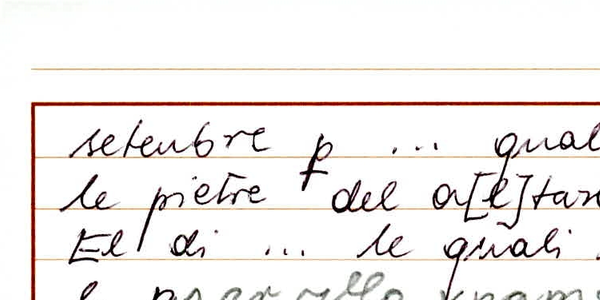 setenbre ꝑ ... qual
le pietre del a[l]tar
El di ... le quali